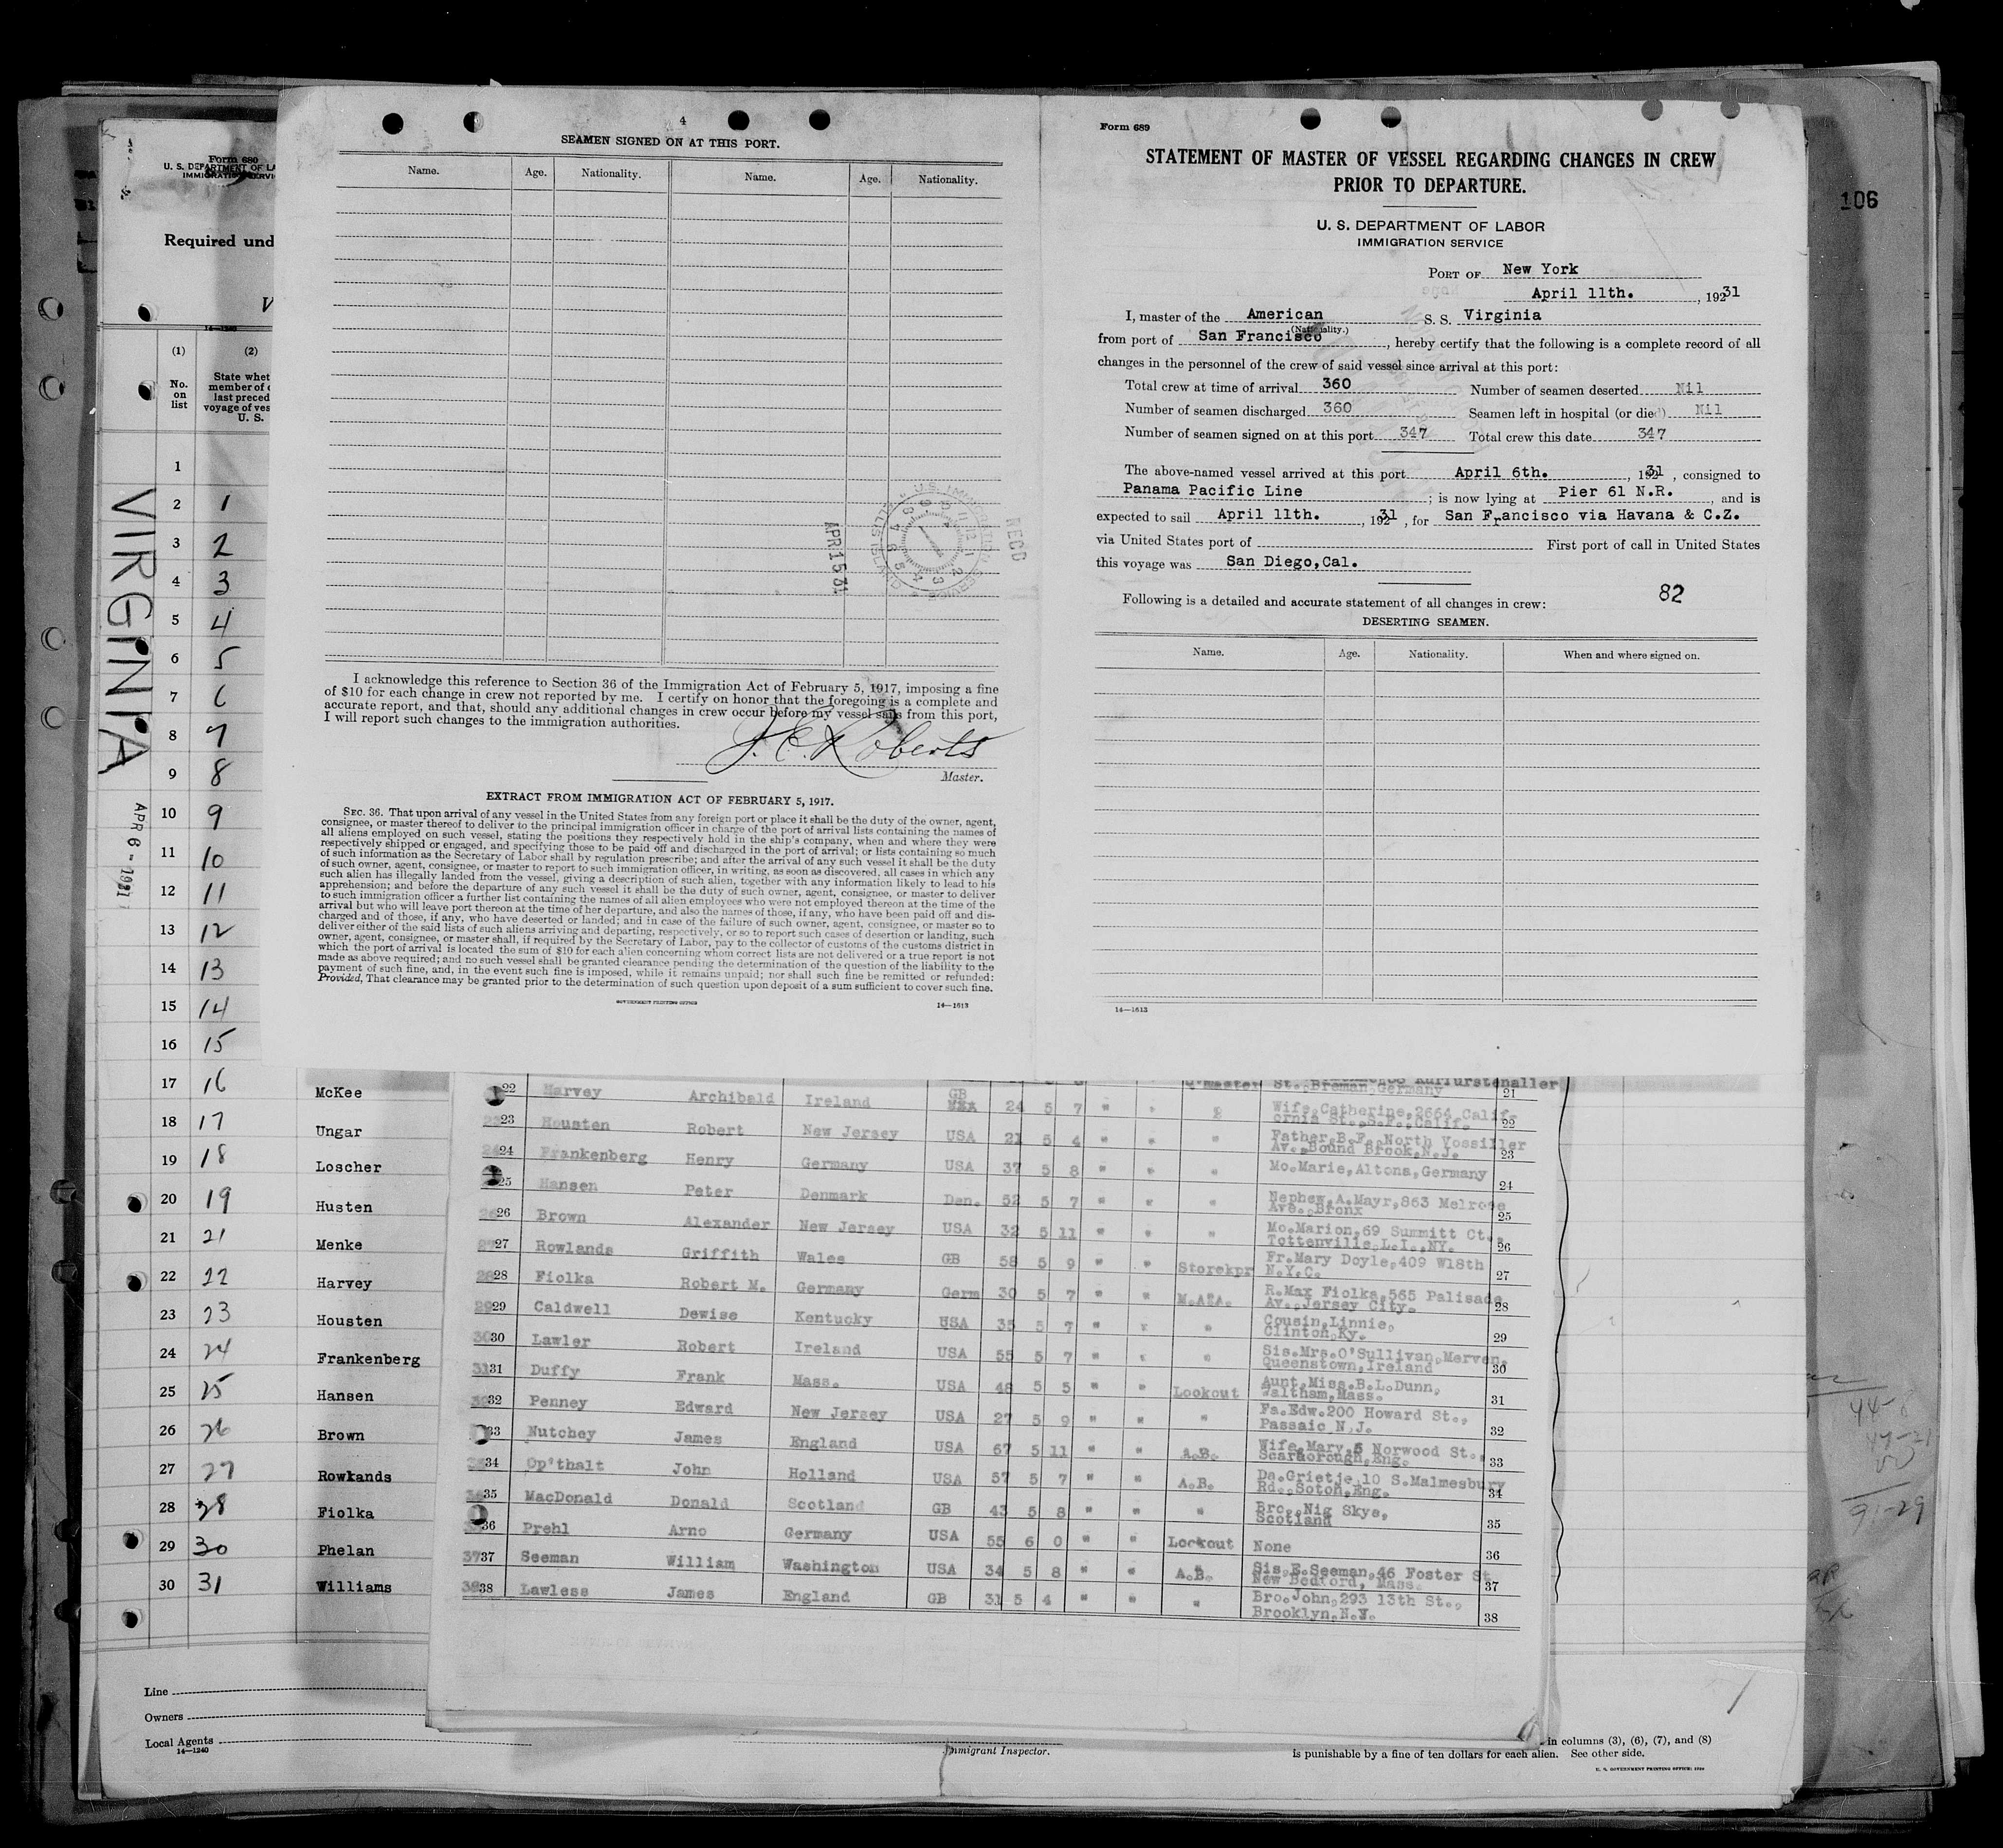 4
SEAMEN SIGNED ON AT THIS PORT.
Name. Age. Nationality. Name. Age. Nationality.
APR 15 31
U. S. IMMIGRATION SERVICE
ELLIS ISLAND
RECD
I acknowledge this reference to Section 36 of the Immigration Act of February 5, 1917, imposing a fine
of $10 for each change in crew not reported by me. I certify on honor that the foregoing is a complete and
accurate report, and that, should any additional changes in crew occur before my vessel sails from this port,
I will report such changes to the immigration authorities.
J. E. Roberts
Master.
EXTRACT FROM IMMIGRATION ACT OF FEBRUARY 5, 1917.
SEC. 36. That upon arrival of any vessel in the United States from any foreign port or place it shall be the duty of the owner, agent,
consignee, or master thereof to deliver to the principal immigration officer in charge of the port of arrival lists containing the names of
all aliens employed on such vessel, stating the positions they respectively hold in the ship's company, when and where they were
respectively shipped or engaged, and specifying those to be paid off and discharged in the port of arrival; or lists containing so much
of such information as the Secretary of Labor shall by regulation prescribe; and after the arrival of any such vessel it shall be the duty
of such owner, agent, consignee, or master to report to such immigration officer, in writing, as soon as discovered, all cases in which any
such alien has illegally landed from the vessel, giving a description of such alien, together with any information likely to lead to his
apprehension; and before the departure of any such vessel it shall be the duty of such owner, agent, consignee, or master to deliver
to such immigration officer a further list containing the names of all alien employees who were not employed thereon at the time of the
arrival but who will leave port thereon at the time of her departure, and also the names of those, if any, who have been paid off and dis-
charged and of those, if any, who have deserted or landed; and in case of the failure of such owner, agent, consignee, or master so to
deliver either of the said lists of such aliens arriving and departing, respectively, or so to report such cases of desertion or landing, such
owner, agent, consignee, or master shall, if required by the Secretary of Labor, pay to the collector of customs of the customs district in
which the port of arrival is located the sum of $10 for each alien concerning whom correct lists are not delivered or a true report is not
made as above required; and no such vessel shall be granted clearance pending the determination of the question of the liability to the
payment of such fine, and, in the event such fine is imposed, while it remains unpaid; nor shall such fine be remitted or refunded:
Provided, That clearance may be granted prior to the determination of such question upon deposit of a sum sufficient to cover such fine.
GOVERNMENT PRINTING OFFICE 14—1613
Form 689
STATEMENT OF MASTER OF VESSEL REGARDING CHANGES IN CREW
PRIOR TO DEPARTURE.
U. S. DEPARTMENT OF LABOR
IMMIGRATION SERVICE
PORT OF New York
April 11th. , 19231
I, master of the American S. S. Virginia
(Nationality.)
from port of San Francisco , hereby certify that the following is a complete record of all
changes in the personnel of the crew of said vessel since arrival at this port:
Total crew at time of arrival 360 Number of seamen deserted Nil
Number of seamen discharged 360 Seamen left in hospital (or died) Nil
Number of seamen signed on at this port 347 Total crew this date 347
The above-named vessel arrived at this port April 6th. , 19231 , consigned to
Panama Pacific Line ; is now lying at Pier 61 N.R. , and is
expected to sail April 11th. , 19231 , for San Francisco via Havana & C.Z.
via United States port of First port of call in United States
this voyage was San Diego,Cal.
82
Following is a detailed and accurate statement of all changes in crew:
DESERTING SEAMEN.
Name. Age. Nationality. When and where signed on.
14—1613
106
Form 680
U. S. DEPARTMENT OF LA
IMMIGRATION SERVI
Required und
V
14—1240
(1) (2)
No. on list
State whet
member of
last preced
voyage of ves
U. S.
VIRGINIA
APR 6 - 1931
1
2 1
3 2
4 3
5 4
6 5
7 6
8 7
9 8
10 9
11 10
12 11
13 12
14 13
15 14
16 15
17 16 McKee
18 17 Ungar
19 18 Loscher
20 19 Husten
21 21 Menke
22 22 Harvey
23 23 Housten
24 24 Frankenberg
25 25 Hansen
26 26 Brown
27 27 Rowkands
28 28 Fiolka
29 30 Phelan
30 31 Williams
St.,Breman,Germany 21
22 Harvey Archibald Ireland GB 24 5 7 " " " Wife,Catherine,2664 Calif-
ornia St.,S.F.,Calif. 22
23 Housten Robert New Jersey USA 21 5 4 " " " Father,B.F.,North Vossiller
Av.,Bound Brook,N.J. 23
24 Frankenberg Henry Germany USA 37 5 8 " " " Mo.Marie,Altona,Germany 24
25 Hansen Peter Denmark Den. 52 5 7 " " " Nephew,A.Mayr,863 Melrose
Ave.,Bronx 25
26 Brown Alexander New Jersey USA 32 5 11 " " " Mo.Marion,69 Summitt Ct.,
Tottenville,L.I.,NY. 26
27 Rowlands Griffith Wales GB 58 5 9 " " Storekpr Fr.Mary Doyle,409 W18th
N.Y.C. 27
28 Fiolka Robert M. Germany Germ 30 5 7 " " M.A?A. R.Max Fiolka,565 Palisade
Av.,Jersey City. 28
29 Caldwell Dewise Kentucky USA 35 5 7 " " " Cousin,Linnie,
Clinton,Ky. 29
30 Lawler Robert Ireland USA 55 5 7 " " " Sis.Mrs.O'Sullivan,Merven,
Queenstown,Ireland 30
31 Duffy Frank Mass. USA 48 5 5 " " Lookout Aunt,Miss.B.L.Dunn,
Waltham,Mass. 31
32 Penney Edward New Jersey USA 27 5 9 " " " Fa.Edw.200 Howard St.,
Passaic N.J. 32
33 Nutchey James England USA 67 5 11 " " A.B. Wife,Mary,5 Norwood St.,
Scarborough,Eng. 33
34 Op'thalt John Holland USA 57 5 7 " " A.B. Da.Grietje,10 S.Malmesbury
Rd.,Soton,Eng. 34
35 MacDonald Donald Scotland GB 43 5 8 " " " Bro.,Nig Skye,
Scotland 35
36 Prehl Arno Germany USA 55 6 0 " " Lookout None 36
37 Seeman William Washington USA 34 5 8 " " A.B. Sis,E.Seeman,46 Foster St
New Bedford, Mass. 37
38 Lawless James England GB 31 5 4 " " " Bro.John,293 13th St.,
Brooklyn,N.Y. 38
Line
Owners
Local Agents
14—1240
Immigrant Inspector.
in columns (3), (6), (7), and (8)
is punishable by a fine of ten dollars for each alien. See other side.
U. S. GOVERNMENT PRINTING OFFICE: 1930
91-29